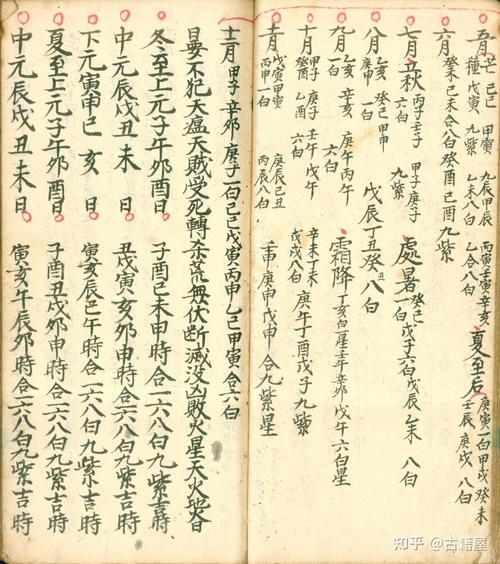 五月 芒種 己巳 戊寅 九紫 九辰甲辰 乙未八白 壬寅辛亥 乙合八白 夏至后 庚寅一白甲戌癸未 壬辰 庚戌 八白
六月 癸未己未合八白癸酉己酉九紫
七月 立秋 丙子壬子 六白 甲子庚子 九紫 處暑 癸巳 一白 戊子六白戊辰乙未 八白
八月 乙亥 庚申 一白 癸巳甲申 六白 戊辰丁丑癸丑八白
九月 乙亥 一白 辛亥 庚午丙午 六白 霜降 丁亥白一星壬午辛卯戊午六白星
十月 甲子 癸酉 一白 庚子 乙酉 壬午戊午 六白 辛未丁未 戊戌八白 庚午丁酉戊子九紫
十一月 戊寅甲寅 丙申一白 庚辰己丑 丙辰八白 壬申庚申戊申合九紫星
十二月 甲子辛卯庚子一白己巳戊寅丙申乙巳甲寅合六白
是要不犯天瘟天賊受死轉杀荒無伏断滅没凶敗火星天火地合
冬至上元子午卯酉日 子酉己未申時合一六八白九紫吉時
中元辰戌丑未日 丑戌寅亥卯申時合一六八白九紫吉時
下元寅申巳亥日 寅亥辰巳午時合一六八白九紫吉時
夏至上元子午卯酉日 子酉丑戌卯申時合一六八白九紫吉時
中元辰戌丑未日 寅亥午辰卯時合一六八白九紫吉時
知乎 @古籍屋